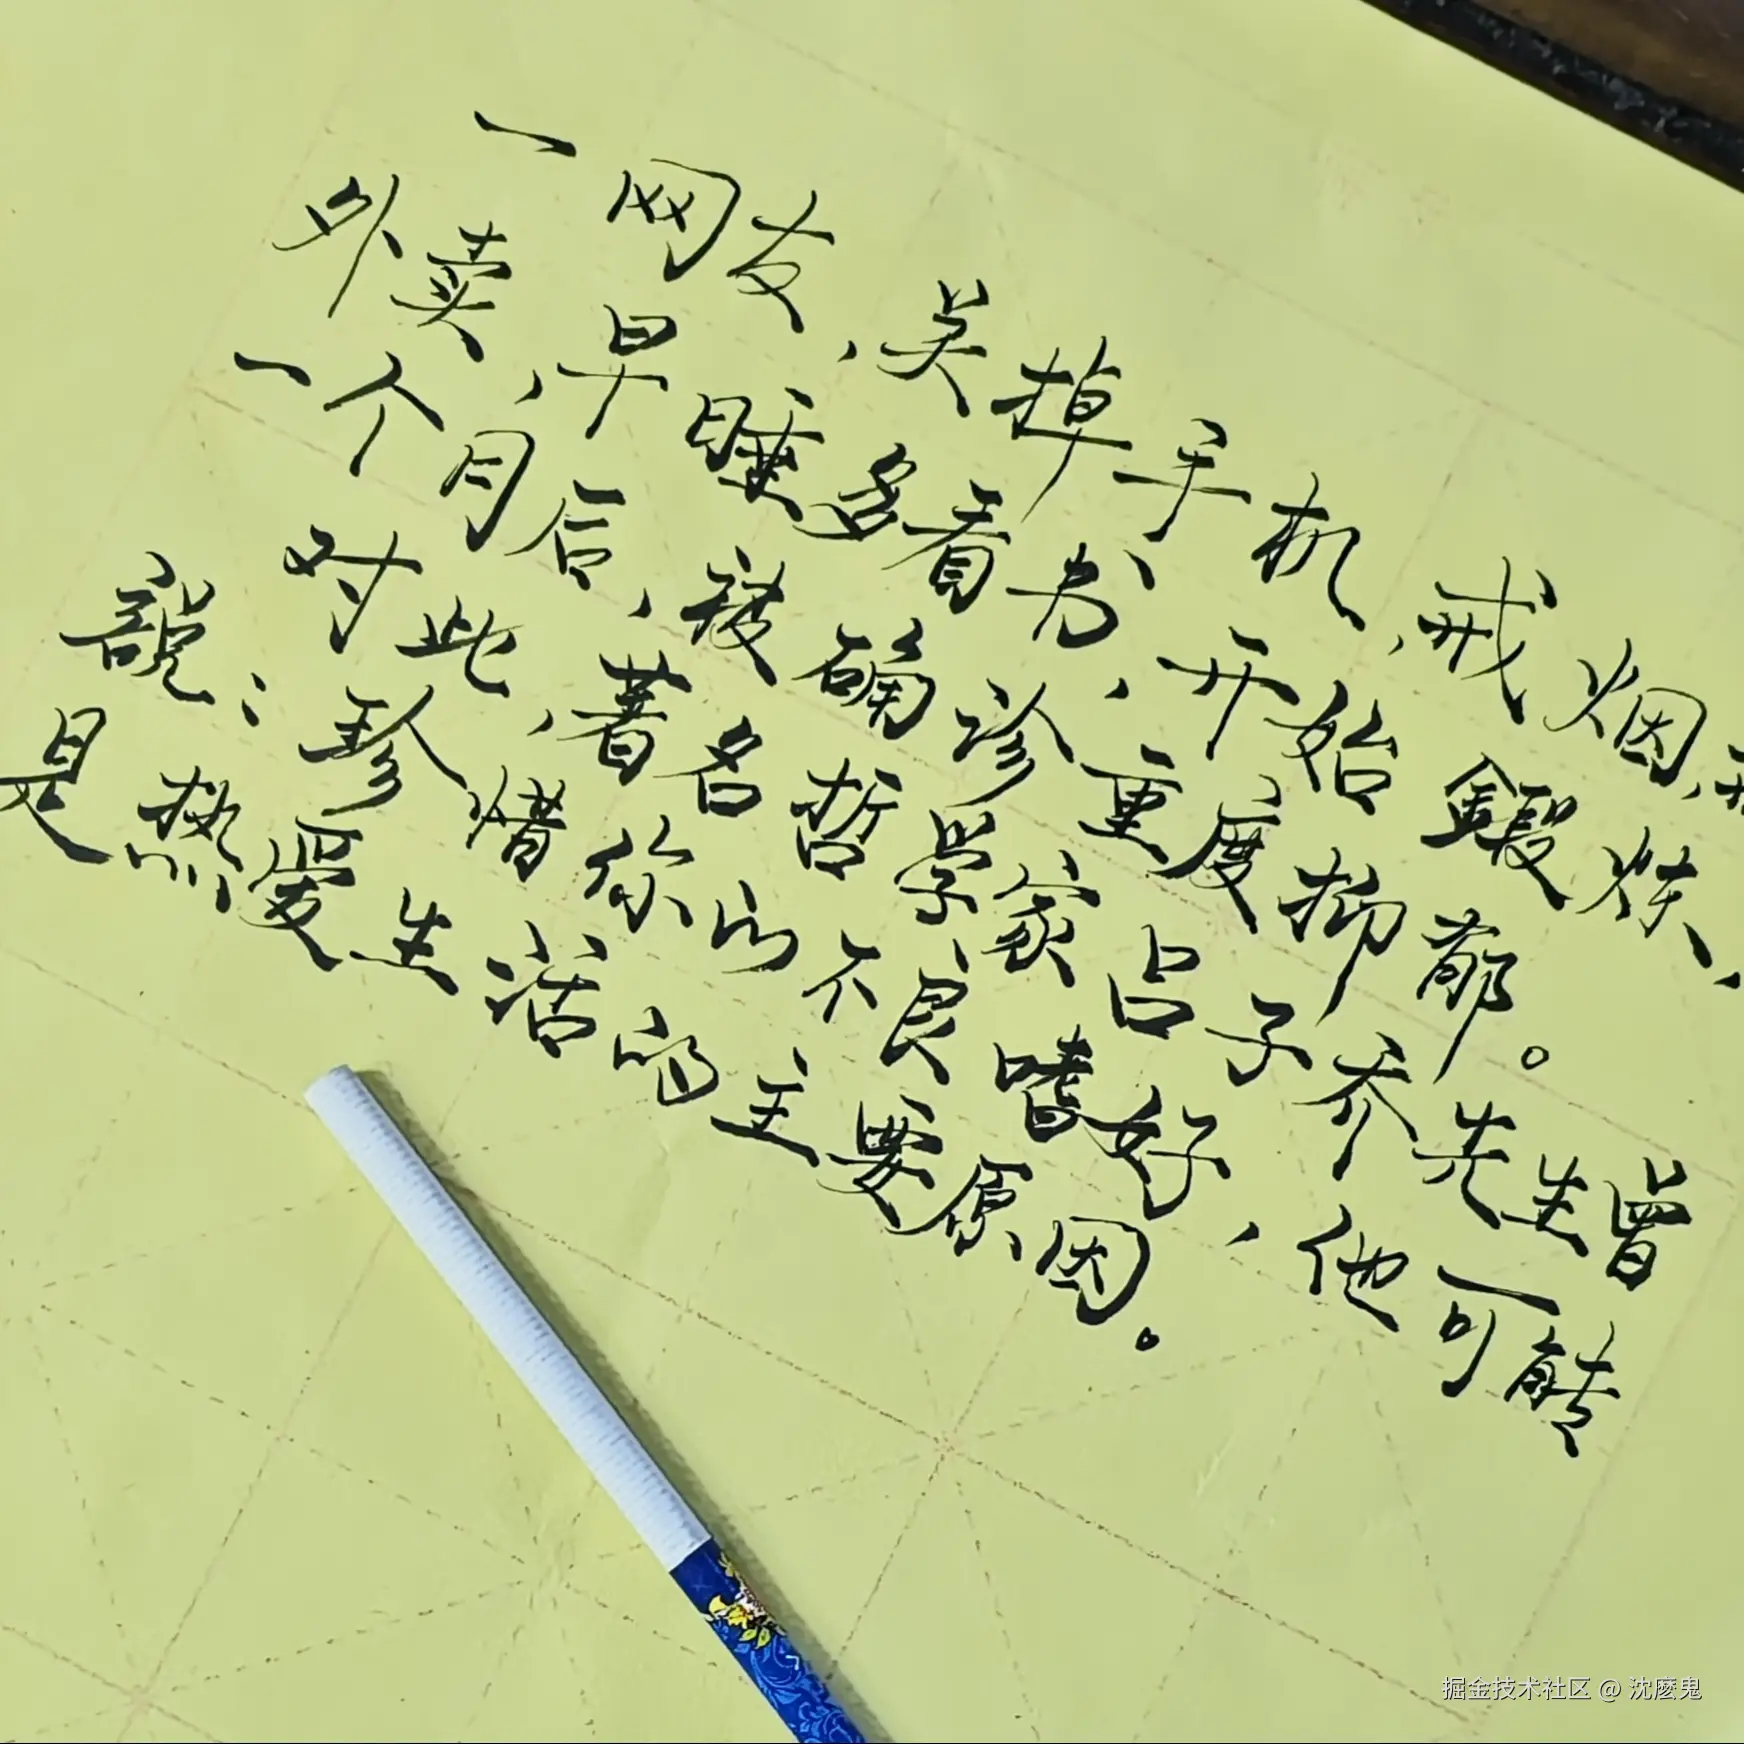 一网友，关掉手机，戒烟，
外卖，早睡多看书，开始鍛炼，
一个月后，被确诊重度抑郁。
对此，著名哲学家吕子乔先生曾
說：珍惜你的不良嗜好，他可能
是热爱生活的主要原因。
掘金技术社区 @ 沈麽鬼